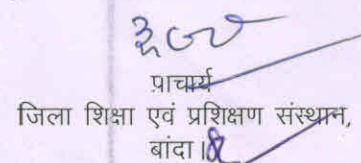 प्राचार्य
जिला शिक्षा एवं प्रशिक्षण संस्थान,
बांदा।